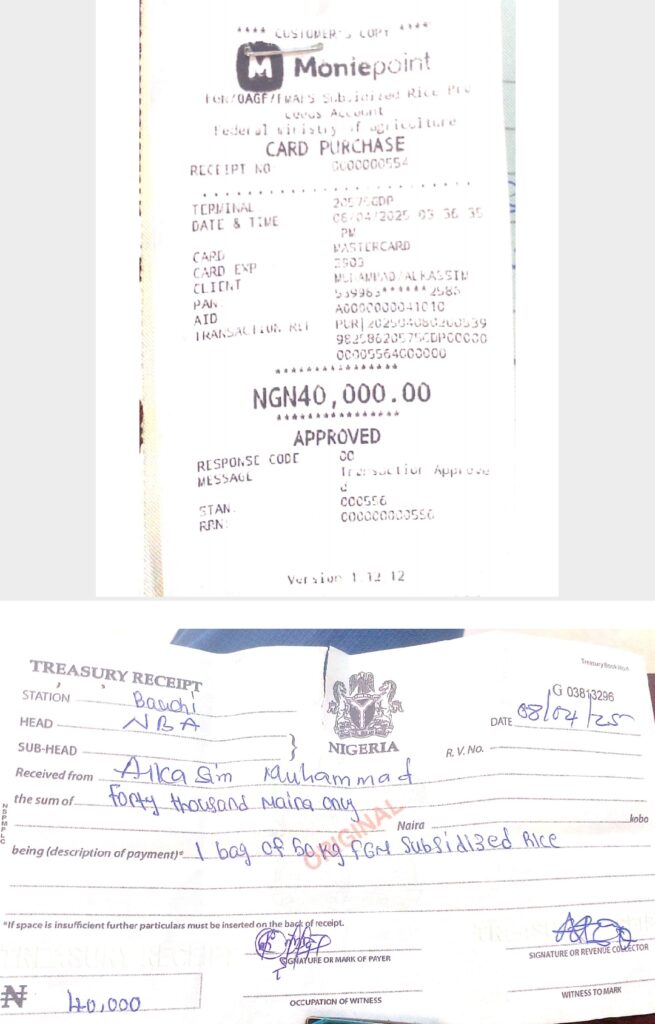 **** CUSTOMER'S COPY ****
M Moniepoint
FGN/OAGF/FMAFS Subsidized Rice Pro
ceeds Account
Federal ministry of agriculture
CARD PURCHASE
RECEIPT NO 0000000554
TERMINAL 20575GDP
DATE & TIME 08/04/2025 03 36 35
PM
CARD MASTERCARD
CARD EXP 2903
CLIENT MUHAMMAD/ALKASSIM
PAN 539983******2585
AID A0000000041010
TRANSACTION REF
****************
NGN40,000.00
****************
APPROVED
RESPONSE CODE 00
MESSAGE Transaction Approve
d
STAN: 000556
RRN: 000000000556
Version 1.12 12
TREASURY RECEIPT
Treasury Book No.
G 03813296
STATION Bauchi
HEAD NBA
DATE 08/04/25
SUB-HEAD
NIGERIA
R.V. No.
Received from Alkasim Muhammad
the sum of Forty thousand Naira only
Naira kobo
ORIGINAL
NSPMPLC
being (description of payment)* 1 bag of 50kg FGN Subsidized Rice
*If space is insufficient further particulars must be inserted on the back of receipt.
SIGNATURE OR MARK OF PAYER
SIGNATURE OR REVENUE COLLECTOR
₦ 40,000
OCCUPATION OF WITNESS
WITNESS TO MARK